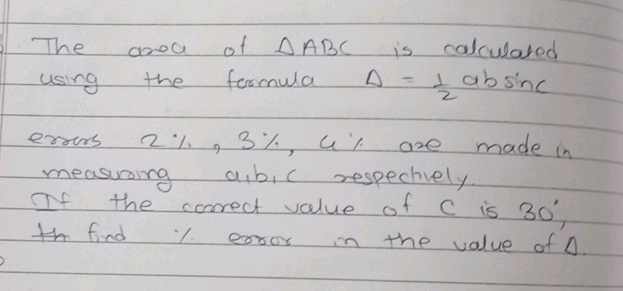 The area of ΔABC is calculated
using the formula Δ = 1/2 ab sinc
errors 2%, 3%, 4% are made in
measuring a, b, c respectively.
If the correct value of C is 30°,
th find % error in the value of Δ.